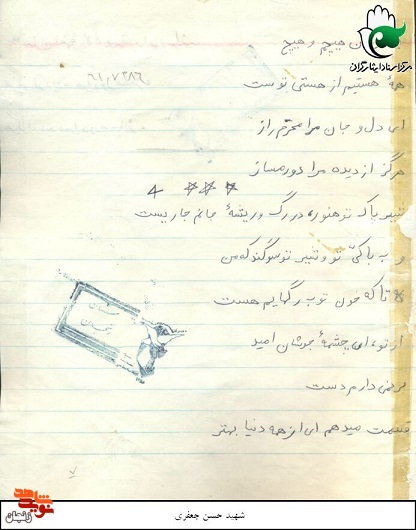 مرکز اسناد ایثارگران
هیچم و هیچ
۶۱٫۷۳۸۶
همهٔ هستیم از هستی توست
ای دل و جان مرا محرم راز
هرگز از دیده مرا دور مساز
۴
شیر پاک تو هنوز، در رگ و ریشهٔ جانم جاریست
و به پاکیّ تو و شیر تو سوگند که من
تا که خون تو به رگهایم هست
از تو، ای چشمهٔ جوشان امید
برنمی دارم دست
قسمت میدهم ای از همه دنیا بهتر
۷
نوید شاهد
زنجان
شهید حسن جعفری